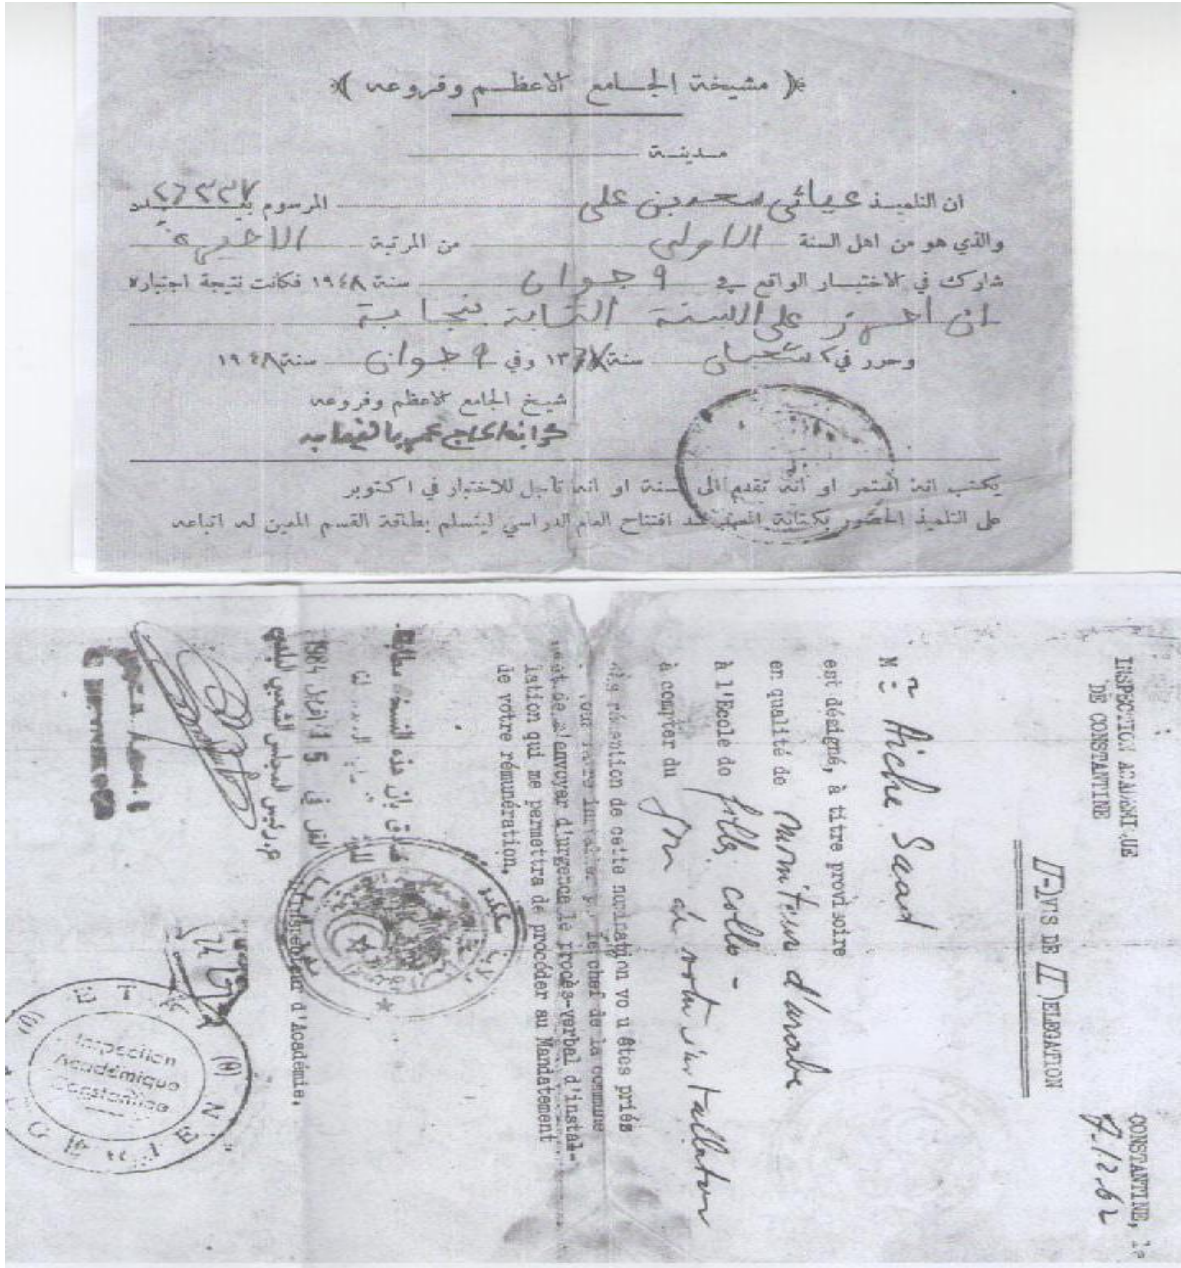 ﴿ مشيخة الجامع الاعظم وفروعه ﴾
مدينة
ان التلميذ عياشي سعد بن علي المرسوم بعدد ٢٦٢٢٧
والذي هو من اهل السنة الاولى من المرتبة
شارك في الاختبار الواقع في ٩ جوان سنة ١٩٤٨ فكانت نتيجة اختباره
ان احرز على السنة الثانية بنجابة
وحرر في ٢ شعبان سنة ١٣٦٧ وفي ٩ جوان سنة ١٩٤٨
شيخ الجامع الاعظم وفروعه
يكتب انه استمر او انه تقدم الى سنة او انه تأجل للاختبار في اكتوبر
على التلميذ الحضور بكتابة المعهد عند افتتاح العام الدراسي ليتسلم بطاقة القسم المعين له اتباعه
INSPECTION ACADEMIQUE
DE CONSTANTINE
CONSTANTINE, le
7.12.62
AVIS DE DELEGATION
Mr Aiche Saad
est désigné, à titre provisoire
en qualité de moniteur d'arabe
à l'Ecole de filles collo -
à compter du jour de votre installation
réception de cette nomination vous êtes priés
le chef de la commune
de m'envoyer d'urgence le procès-verbal d'instal-
lation qui me permettra de procéder au Mandatement
de votre rémunération.
L'Inspecteur d'Académie.
Inspection
Académique
Constantine
القل في 5 افريل 1984
ع/رئيس المجلس الشعبي البلدي